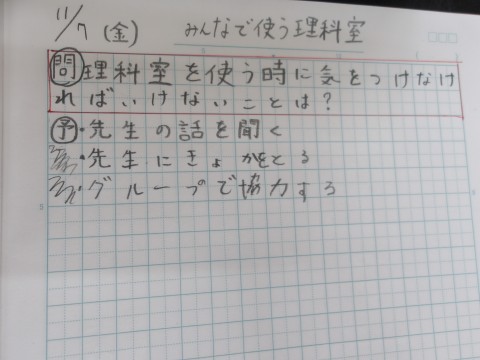 11/7 (金) みんなで使う理科室
問 理科室を使う時に気をつけなけ
ればいけないことは?
予・先生の話を聞く
・先生にきょかをとる
・グループで協力する